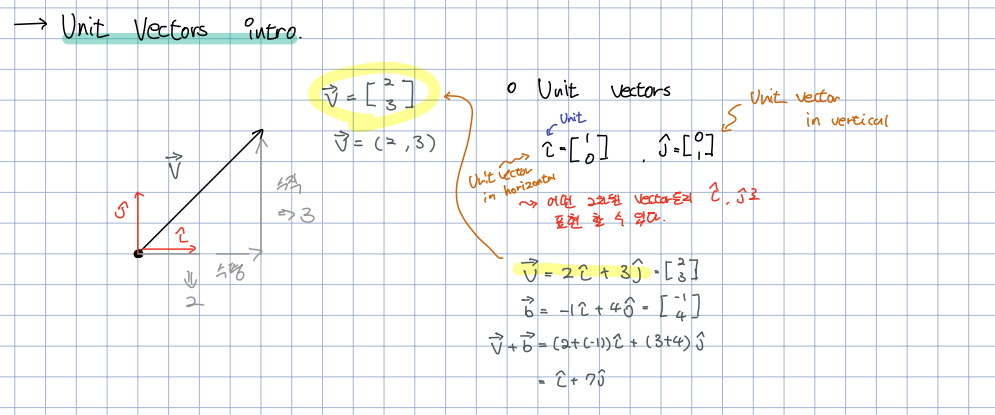 → Unit Vectors intro.
V⃗ = [2 3]
V⃗ = (2, 3)
V⃗
ĵ
î
수직
⇒ 3
수평
⇓
2
o Unit vectors
Unit
î = [1 0] , ĵ = [0 1]
Unit vector
in vertical
Unit vector
in horizontal
⇝ 어떤 2차원 vector든지 î, ĵ로
표현 할 수 있다.
V⃗ = 2î + 3ĵ = [2 3]
b⃗ = -1î + 4ĵ = [-1 4]
V⃗ + b⃗ = (2+(-1))î + (3+4)ĵ
= î + 7ĵ